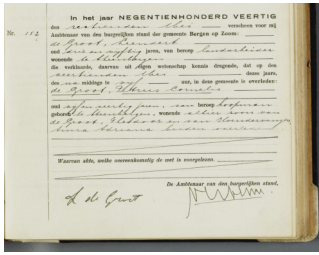 In het jaar NEGENTIENHONDERD VEERTIG
den zestienden Mei verscheen voor mij
Nr. 152
Ambtenaar van den burgerlijken stand der gemeente Bergen op Zoom:
de Groot, Leendert
oud drie en vijftig jaren, van beroep landarbeider
wonende te Steenbergen
die verklaarde, daarvan uit eigen wetenschap kennis dragende, dat op den
veertienden Mei dezes jaars,
des na middags te vijf uur, in deze gemeente is overleden:
de Groot, Petrus Cornelis
oud jaren, van beroep koopman
geboren te Steenbergen, wonende alhier zoon van
de Groot, en van
Anna Adriana beiden overleden
Waarvan akte, welke overeenkomstig de wet is voorgelezen.
De Ambtenaar van den burgerlijken stand,
L de Groot